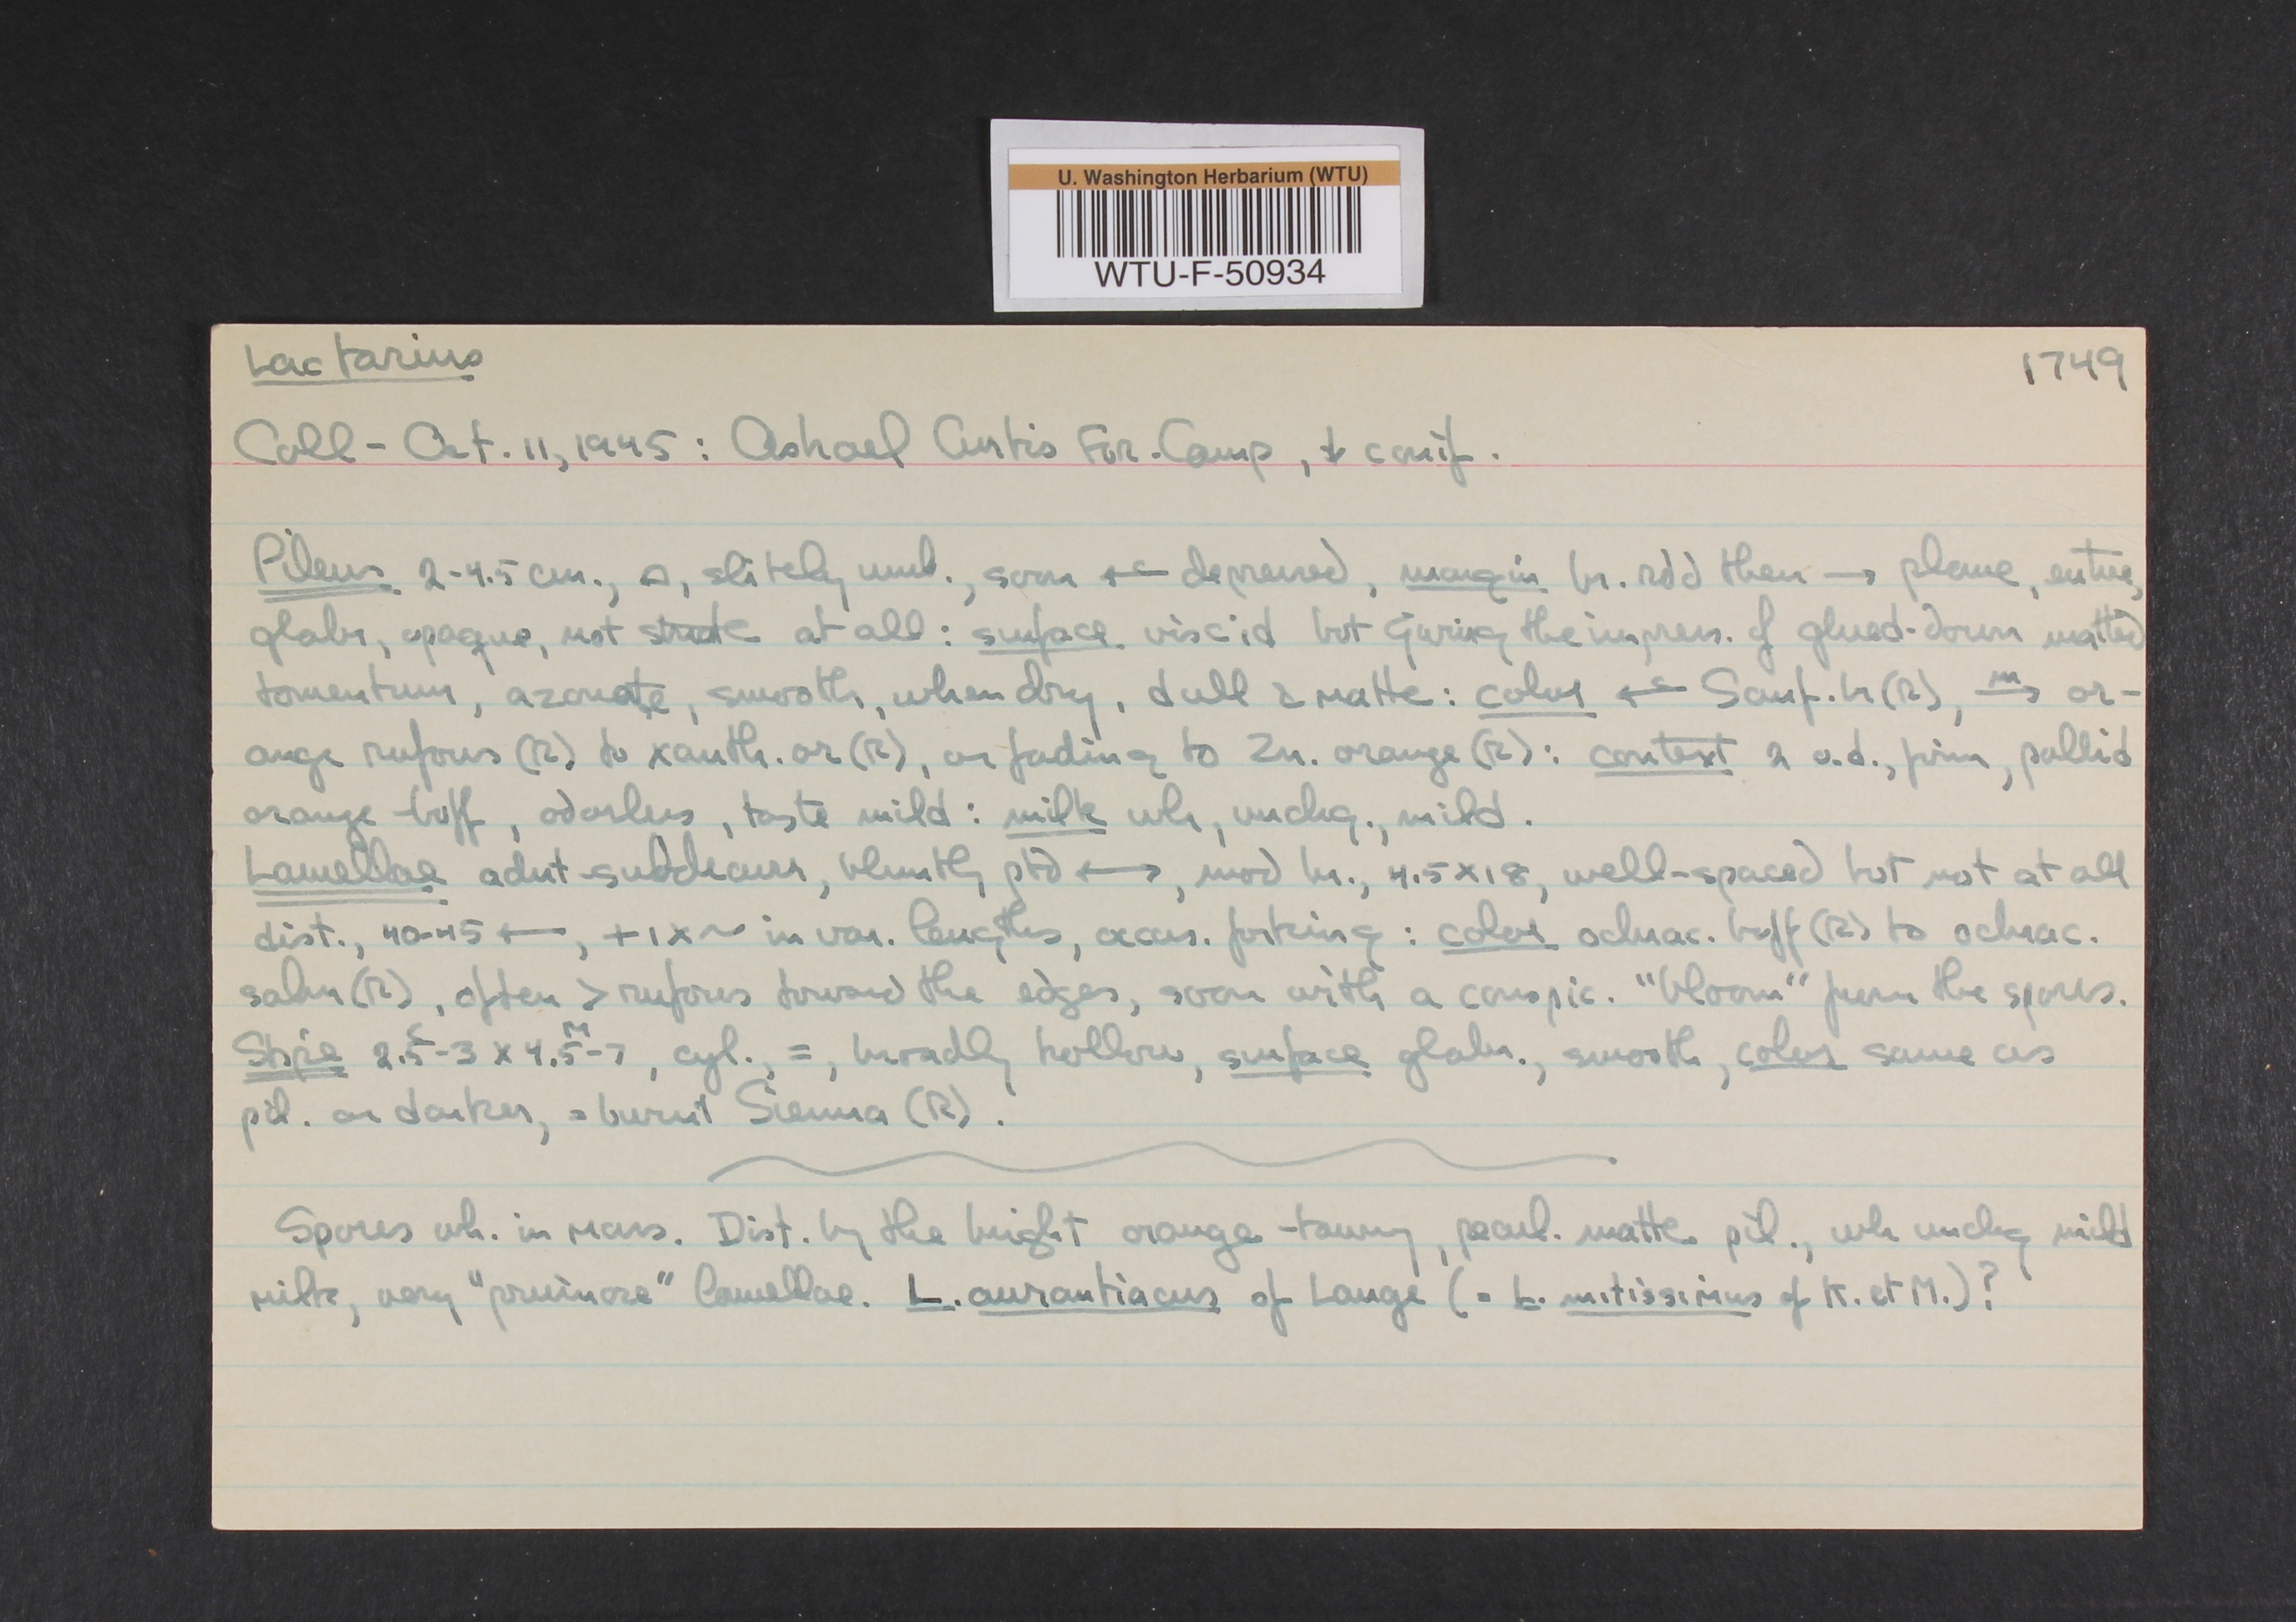 U. Washington Herbarium (WTU)
WTU-F-50934
Lactarius 1749
Coll - Oct. 11, 1945 : Ashael Curtis For. Camp, conif.
Pileus 2-4.5 cm., slitely umb., soon depressed, margin br. rdd then → plane, entire,
glabr, opaque, not striate at all : surface viscid but giving the impress. of glued-down matted
tomentum, azonate, smooth, when dry, dull & matte : color Sanf. br (R), m→ or-
ange rufous (R) to xanth. or (R), or fading to Zn. orange (R) : context 2 o.d., firm, pallid
orange-buff, odorless, taste mild : milk wh, unchg., mild.
Lamellae adnt-subdecurr, bluntly ptd ⟷, mod br., 4.5 x 18, well-spaced but not at all
dist., 40-45 ⟵, + 1 x ~ in var. lengths, occas. forking : color ochrac. buff (R) to ochrac.
salm (R), often > rufous toward the edges, soon with a conspic. "bloom" from the spores.
Stipe 2.5-3 x 4.5-7, cyl., =, broadly hollow, surface glabr., smooth, color same as
pil. or darker, = burnt Sienna (R).
Spores wh. in mass. Dist. by the bright orange-tawny, matte pil., wh unchg mild
milk, very "pruinose" lamellae. L. aurantiacus of Lange (= L. mitissimus of K. et M.)?